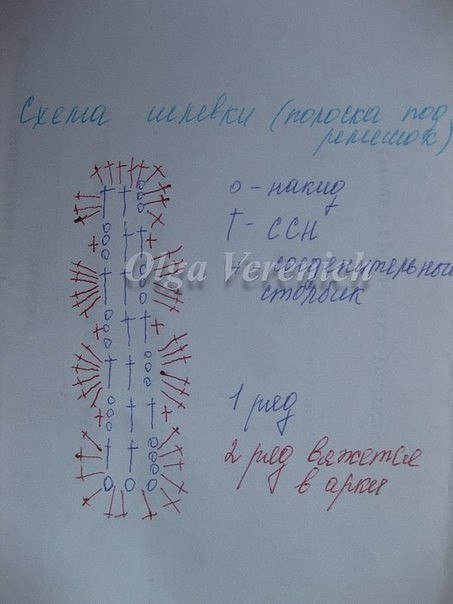 Схема шлевки (полоска под
ремешок)
о - накид
† - ССН
+ - соединительный
столбик
Olga Verenich
1 ряд
2 ряд вяжется
в арки